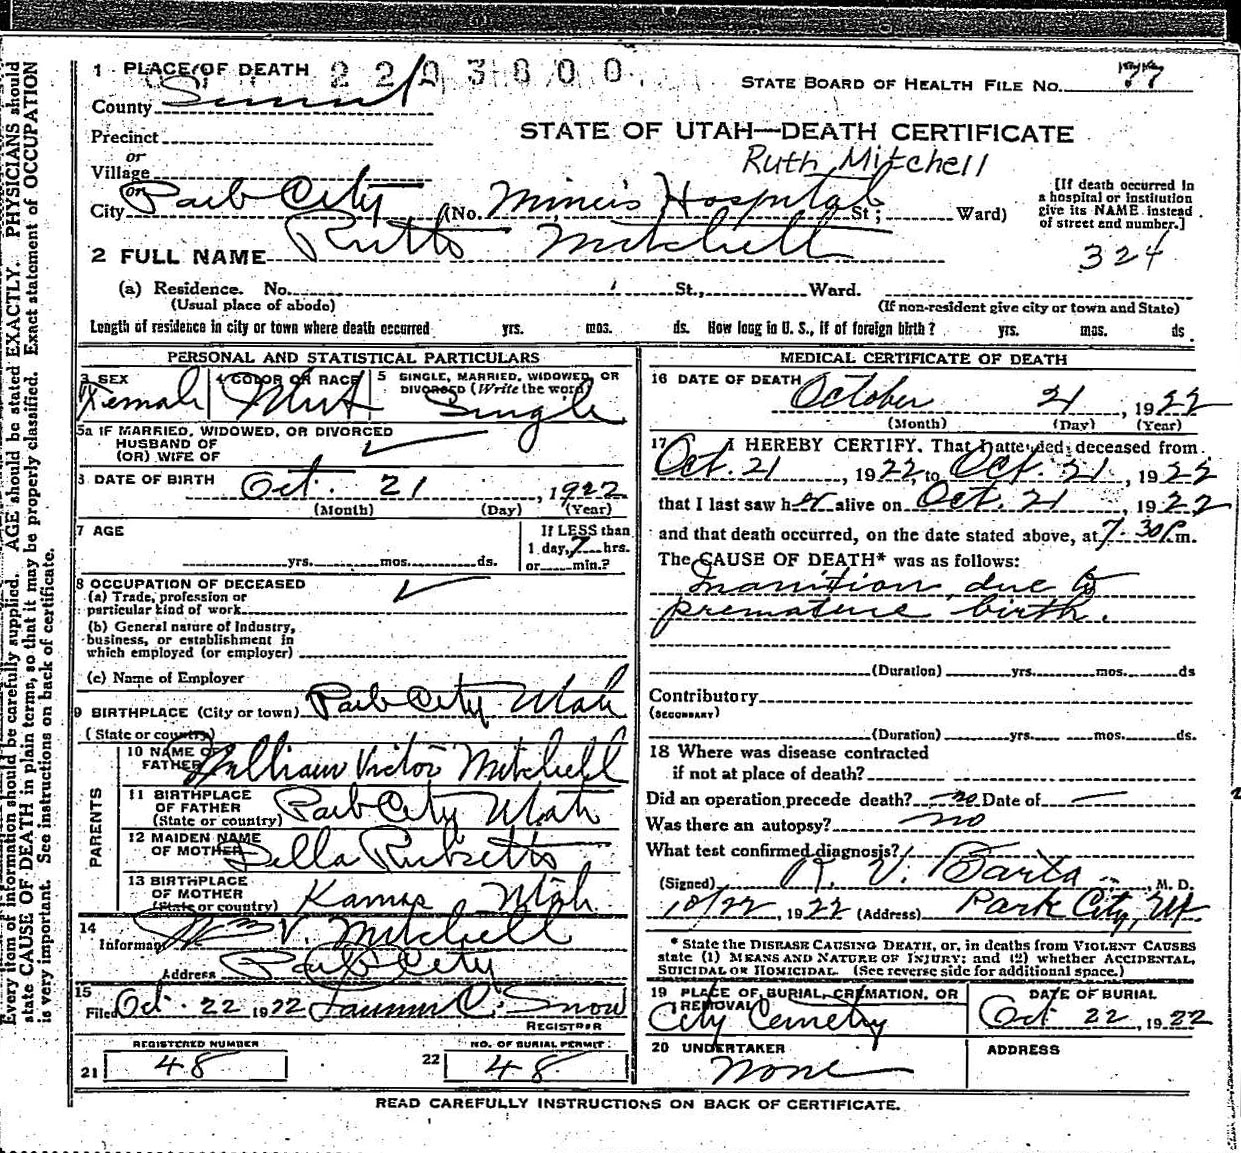 1 PLACE OF DEATH 2203600
STATE BOARD OF HEALTH FILE No. 77
County Summit
STATE OF UTAH—DEATH CERTIFICATE
Precinct
Ruth Mitchell
or
Village
or
City Park City (No. Miners Hospital St; Ward)
[If death occurred in
a hospital or institution
give its NAME instead
of street and number.]
2 FULL NAME Ruth Mitchell
324
(a) Residence. No. St., Ward.
(Usual place of abode) (If non-resident give city or town and State)
Length of residence in city or town where death occurred yrs. mos. ds. How long in U. S., if of foreign birth? yrs. mos. ds
PERSONAL AND STATISTICAL PARTICULARS
3 SEX 4 COLOR OR RACE 5 SINGLE, MARRIED, WIDOWED, OR
DIVORCED (Write the word)
Female White Single
5a IF MARRIED, WIDOWED, OR DIVORCED
HUSBAND OF
(OR) WIFE OF
DATE OF BIRTH Oct. 21, 1922
(Month) (Day) (Year)
7 AGE If LESS than
yrs. mos. ds. 1 day, 7 hrs.
or min.?
8 OCCUPATION OF DECEASED
(a) Trade, profession or
particular kind of work
(b) General nature of Industry,
business, or establishment in
which employed (or employer)
(c) Name of Employer
9 BIRTHPLACE (City or town) Park City Utah
(State or country)
PARENTS
10 NAME OF
FATHER William Victor Mitchell
11 BIRTHPLACE
OF FATHER
(State or country) Park City Utah
12 MAIDEN NAME
OF MOTHER Della Ricketts
13 BIRTHPLACE
OF MOTHER
(State or country) Kamas Utah
14
Informant Wm V. Mitchell
Address Park City
15
Filed Oct. 22 1922 C. Snow
REGISTRAR
REGISTERED NUMBER NO. OF BURIAL PERMIT
21 48 22 48
MEDICAL CERTIFICATE OF DEATH
16 DATE OF DEATH
October 21, 1922
(Month) (Day) (Year)
17 I HEREBY CERTIFY, That I attended deceased from
Oct. 21, 1922, to Oct. 21, 1922
that I last saw her alive on Oct. 21, 1922
and that death occurred, on the date stated above, at 7-30 P.m.
The CAUSE OF DEATH* was as follows:
Inanition, due to
premature birth.
(Duration) yrs. mos. ds
Contributory
(SECONDARY)
(Duration) yrs. mos. ds.
18 Where was disease contracted
if not at place of death?
Did an operation precede death? no Date of —
Was there an autopsy? no
What test confirmed diagnosis?
(Signed) R. V. Barta, M. D.
10/22, 1922 (Address) Park City, Ut.
* State the DISEASE CAUSING DEATH, or, in deaths from VIOLENT CAUSES
state (1) MEANS AND NATURE OF INJURY; and (2) whether ACCIDENTAL,
SUICIDAL OR HOMICIDAL. (See reverse side for additional space.)
19 PLACE OF BURIAL, CREMATION, OR
REMOVAL DATE OF BURIAL
City Cemetry Oct 22, 1922
20 UNDERTAKER ADDRESS
none
READ CAREFULLY INSTRUCTIONS ON BACK OF CERTIFICATE.
Every item of information should be carefully supplied. AGE should be stated EXACTLY. PHYSICIANS should
state CAUSE OF DEATH in plain terms, so that it may be properly classified. Exact statement of OCCUPATION
is very important. See instructions on back of certificate.